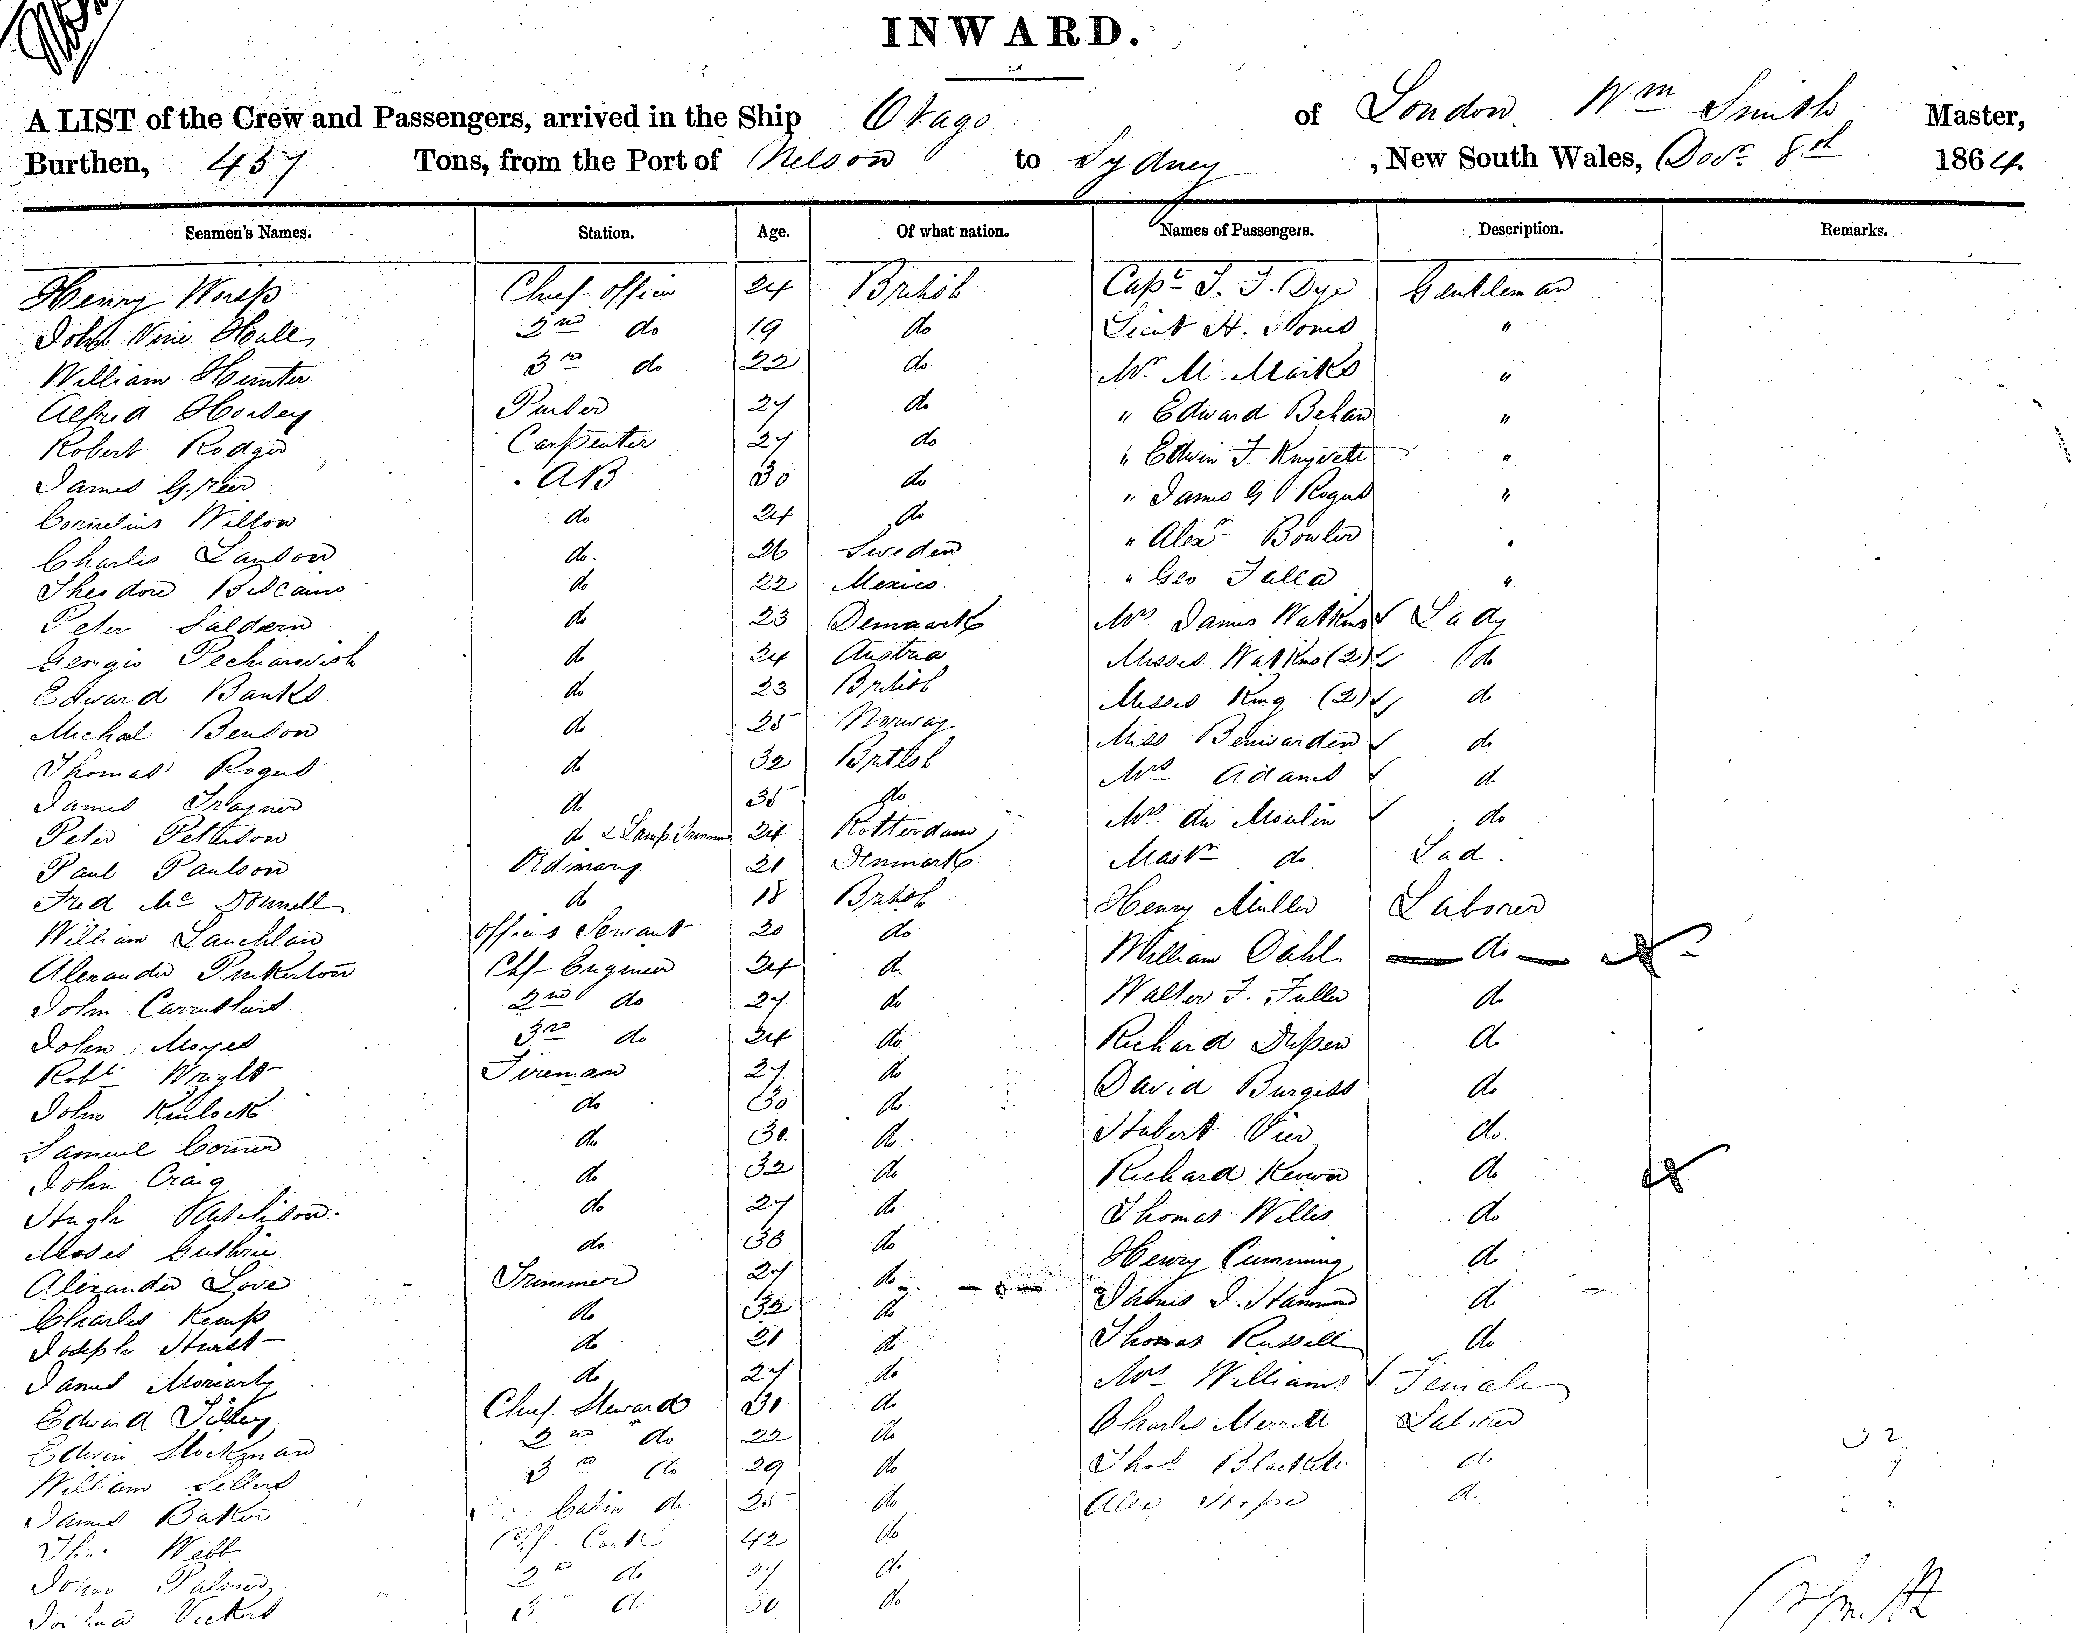 INWARD.
A LIST of the Crew and Passengers, arrived in the Ship Otago of London Wm Smith Master,
Burthen, 457 Tons, from the Port of Nelson to Sydney, New South Wales, 8th 1864.
Seamen's Names. Station. Age. Of what nation. Names of Passengers. Description. Remarks.
Henry Worsp Chief officer 24 British Capt J. J. Dye Gentleman
John Vine Hall 2nd do 19 do Lieut H. Jones "
William Hunter 3rd do 22 do Mr M Marks "
Alfred Horsey Purser 27 do " Edward Behan "
Robert Rodger Carpenter 27 do " Edwin F Knyvett "
James Greer AB 30 do " James G Rogers "
Cornelius Wilton do 24 do " Alexr Bowler "
Charles Lawson do 26 Sweden " Geo Falla "
Theodore Biscaino do 22 Mexico Mrs James Watkins Lady
Peter Saldern do 23 Denmark Misses Watkins (2) do
Georgio do 24 Austria Misses King (2) do
Edward Banks do 23 British Miss do
Michal Benson do 25 Norway Mrs Adams do
Thomas Rogers do 32 British Mrs du Moulin do
James Traynor do 35 do Mastr do Lad.
Peter Petterson do & Lamp Trimmer 24 Rotterdam Henry Muller Laborer
Paul Paulson Ordinary 21 Denmark William Dahl do
Fred Mc Donnell do 18 British Walter J. Fuller do
William Lauchlan officers Servant 20 do Richard do
Alexander Pinkerton Chf Engineer 34 do David Burgess do
John Carruthers 2nd do 27 do Hubert Vier do
John Moyes 3rd do 24 do Richard Kerwin do
Robt Wright Fireman 27 do Thomas Willis do
John Kinlock do 30 do Henry Cumming do
Samuel Corner do 30 do James J. Hammond do
John Craig do 32 do Thomas Russell do
Hugh do 27 do Mrs Williams Female
Moses Guthrie do 38 do Charles Merrett Laborer
Alexander Love Trimmer 27 do Thos Blackett do
Charles Kemp do 32 do Alex do
Joseph do 21 do
James Moriarty do 27 do
Edward Tilley Chief Steward 30 do
Edwin Stockman 2nd do 22 do
William Sellers 3rd do 29 do
James Baker Cabin do 25 do
Thos Webb Chf Cook 42 do
John Palmer 2nd do 27 do
Joshua Vickers 3 do 30 do